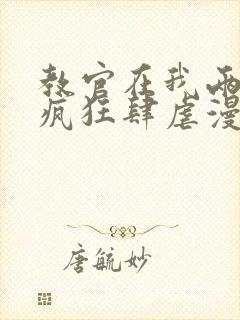 教官在我两
疯狂肆虐漫
唐毓妙